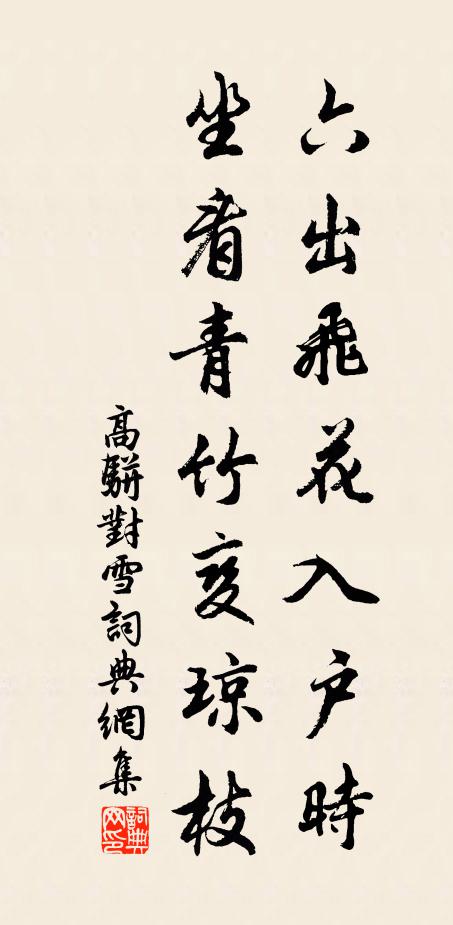 六出飛花入户時
坐看青竹变琼枝
高駢對雪詞典網集
詞典网印